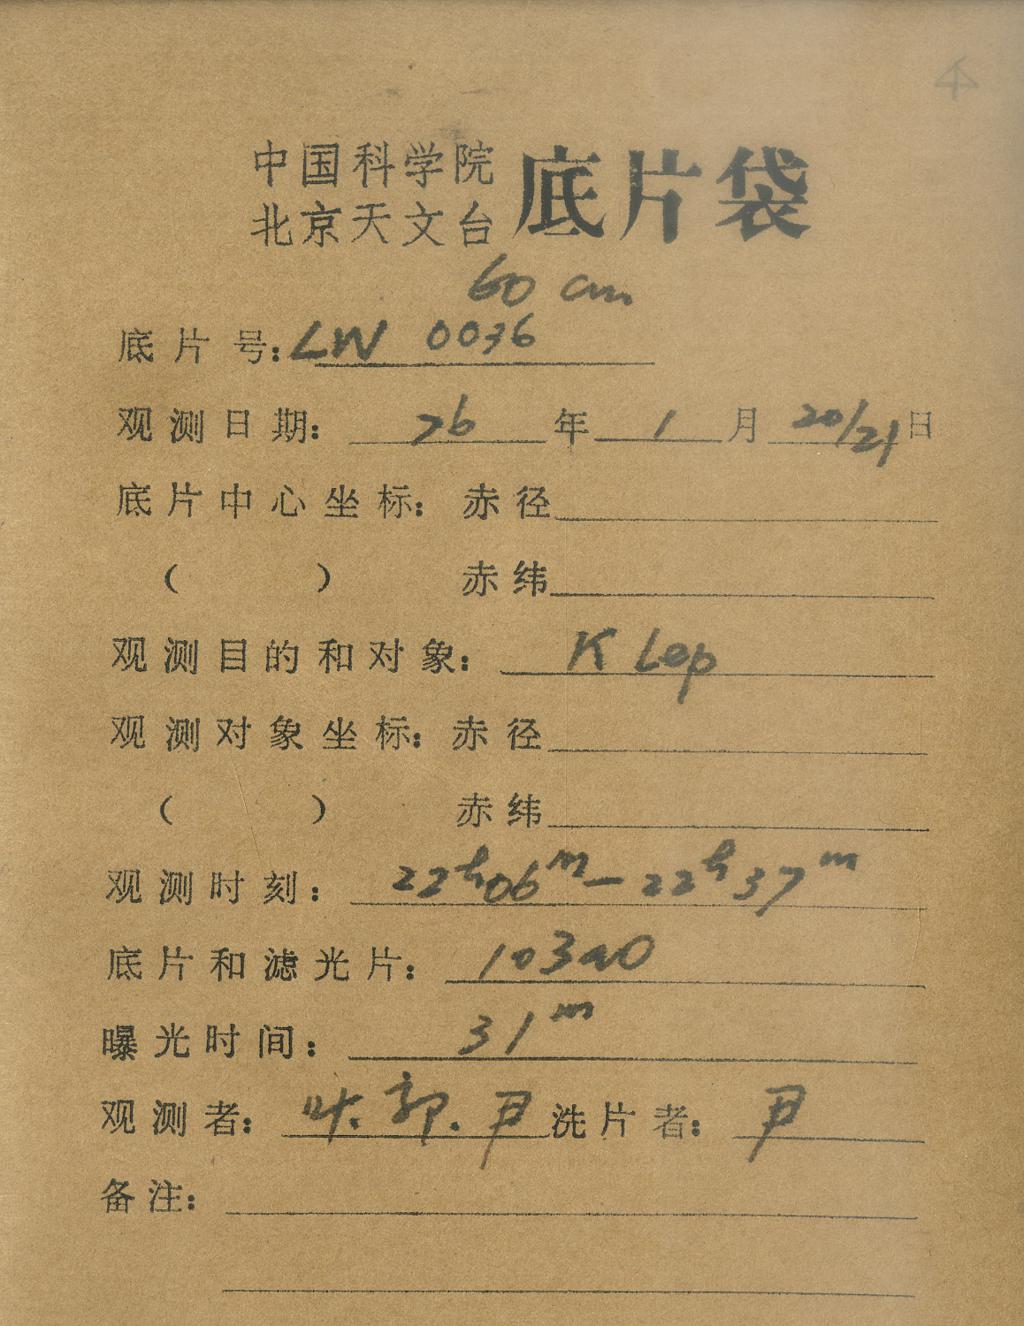 4
中国科学院
北京天文台 底片袋
60 cm
底片号: LW 0036
观测日期: 76 年 1 月 20/21 日
底片中心坐标: 赤径
( ) 赤纬
观测目的和对象: K Lep
观测对象坐标: 赤径
( ) 赤纬
观测时刻: 22h06m—22h37m
底片和滤光片: 103aO
曝光时间: 31m
观测者: 叶.郭.尹 洗片者: 尹
备注: